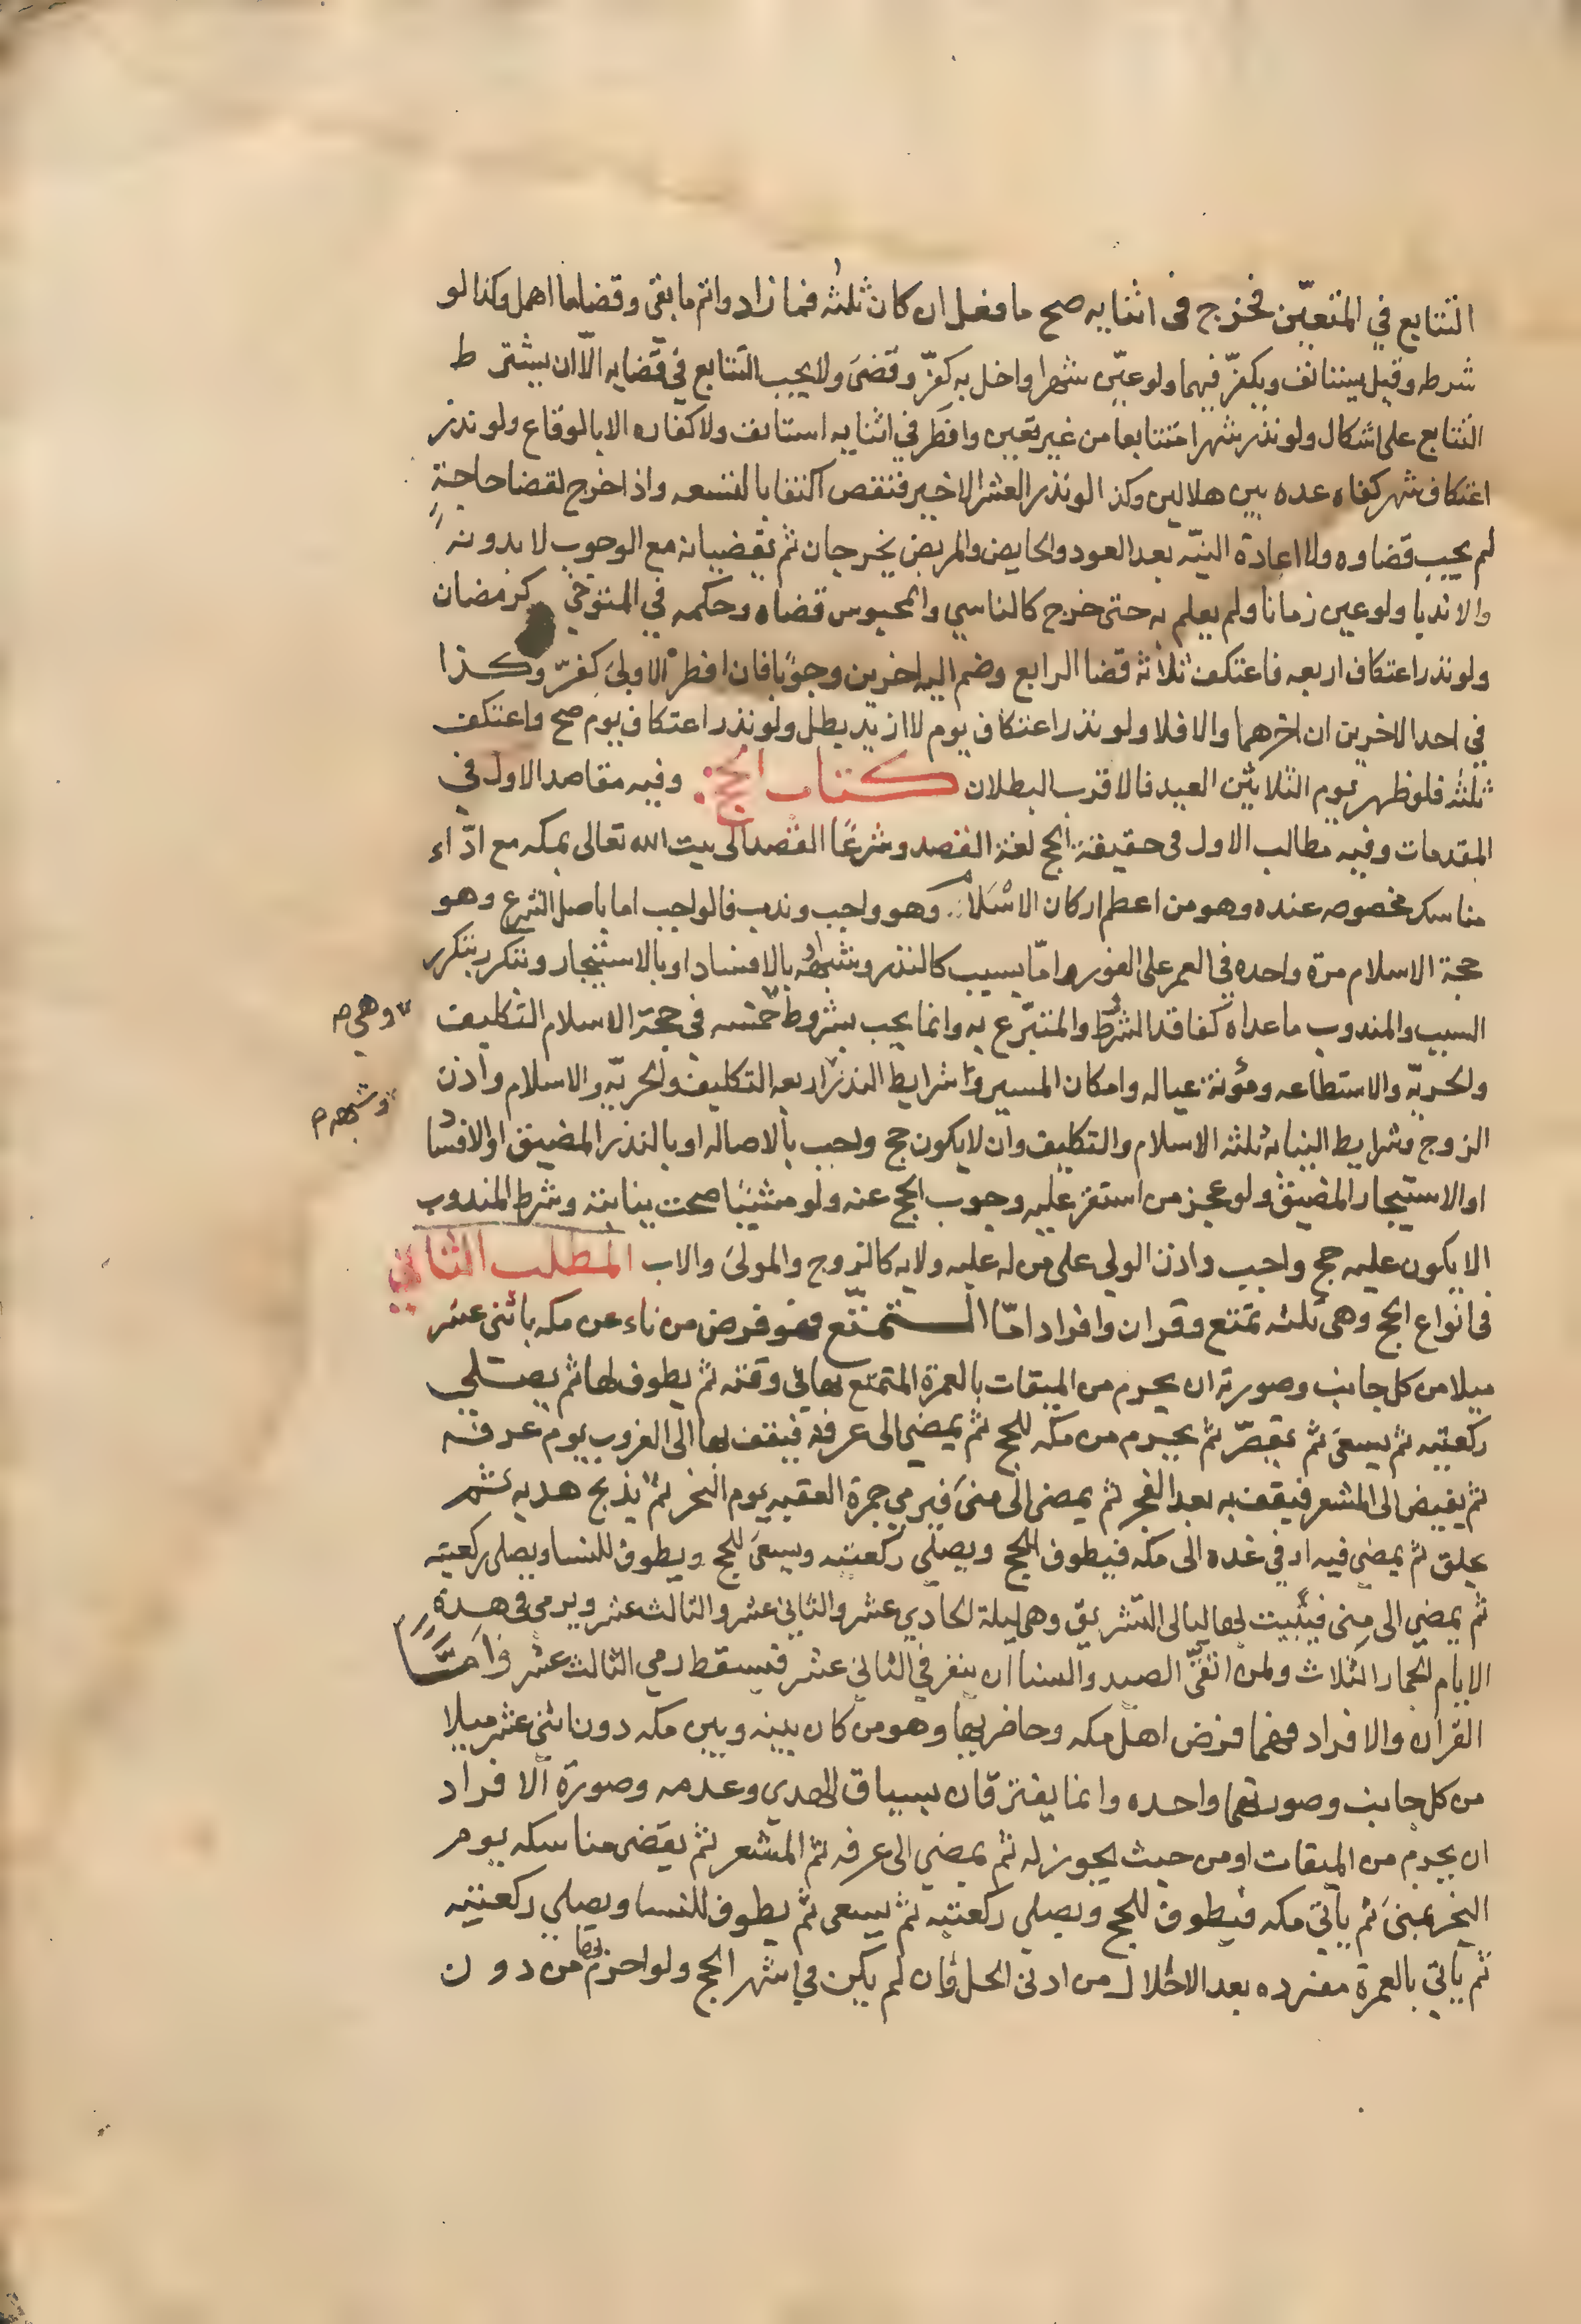 التتابع في المتعيّن فخرج في اثنايه صح ما فعل ان كان ثلثه فما زاد واتم ما بقى وقضا ما اهمل وكذا لو
شرطه وقيل يستانف ويكفّر فيهما ولو عيّن شهرا واخل به كفّر وقضى ولا يجب التتابع في قضايه الّا ان يشتر ط
التتابع على اشكال ولو نذر شهرا متتابعا من غير تعيين وافطر في اثنايه استانف ولا كفاره الا بالوقاع ولو نذر
اعتكاف شهر كفاه عده بين هلالين وكذا لو نذر العشر الاخير فنقص اكتفا بالتسعه واذا خرج لقضا حاجة
لم يجب قضاوه ولا اعادة النيّه بعد العود والحايض والمريض يخرجان ثم يقضيانه مع الوجوب لا بدونه
والا ندبا ولو عين زمانا ولم يعلم به حتى خرج كالناسي والمحبوس قضاه وحكمه في المتوخي كرمضان
ولو نذر اعتكاف اربعه فاعتكف ثلاثه قضا الرابع وضم اليه اخرين وجوبا فان افطر الاولى كفّر وكذا
في احد الاخرين ان اخرهما والا فلا ولو نذر اعتكاف يوم لا ازيد بطل ولو نذر اعتكاف يوم صح واعتكف
ثلثه فلو ظهر يوم الثلاثين العيد فالاقرب البطلان كتاب الحج وفيه مقاصد الاول في
المقدمات وفيه مطالب الاول في حقيقة الحج لغة القصد وشرعًا القصد الى بيت الله تعالى بمكه مع ادّاء
مناسك مخصوصه عنده وهو من اعظم اركان الاسلام وهو واجب وندب فالواجب اما باصل الشرع وهو
حجة الاسلام مرة واحده في العمر على الفور وامّا بسبب كالنذر وشبهه او بالافساد او بالاستيجار وتتكرر بتكرر
السبب والمندوب ما عداه كفاقد الشرط والمتبرّع به وانما يجب بشروط خمسه في حجة الاسلام التكليف
وهي م
والحريّه والاستطاعه ومؤنة عياله وامكان المسير وشرايط النذر اربعه التكليف والحريّه والاسلام واذن
وشبهه م
الزوج وشرايط النيابه ثلثه الاسلام والتكليف وان لا يكون حج واجب بالاصاله او بالنذر المضيق او الافساد
او الاستيجار المضيق ولو عجز من استقر عليه وجوب الحج عنه ولو مشيًا صحت نيابته وشرط المندوب
الا يكون عليه حج واجب واذن الولي على من له عليه ولايه كالزوج والمولى والاب المطلب الثاني
في انواع الحج وهي ثلثه تمتع وقران وافراد امّا التمتّع فهو فرض من ناء عن مكه باثنى عشر
ميلا من كل جانب وصورته ان يحرم من الميقات بالعمرة المتمتع بها في وقته ثم يطوف لها ثم يصلي
ركعتيه ثم يسعى ثم يقصّر ثم يحرم من مكه للحج ثم يمضي الى عرفة فيقف بها الى الغروب يوم عرفه
ثم يفيض الى المشعر فيقف به بعد الفجر ثم يمضي الى منى فيرمي جمرة العقبه يوم النحر ثم يذبح هديه ثم
يحلق ثم يمضي فيه او في غده الى مكه فيطوف للحج ويصلي ركعتيه ويسعى للحج ويطوف للنسا ويصلى ركعتيه
ثم يمضي الى منى فيبيت بها ليالى التشريق وهى ليلة الحادي عشر والثاني عشر والثالث عشر ويرمى في هذه
الايام الجمار الثلاث ولمن اتقى الصيد والنسا ان ينفر في الثاني عشر فيسقط رمي الثالث عشر وامّا
القران والافراد فهما فرض اهل مكه وحاضريها وهو من كان بينه وبين مكه دون اثنى عشر ميلا
من كل جانب وصورتهما واحده وانما يفترقان بسياق الهدي وعدمه وصورة الافراد
ان يحرم من الميقات او من حيث يجوز له ثم يمضي الى عرفه ثم المشعر ثم يقضى مناسكه يوم
النحر بمنى ثم ياتي مكه فيطوف للحج ويصلي ركعتيه ثم يسعى ثم يطوف للنسا ويصلي ركعتيه
ثم ياتي بالعمرة مفرده بعد الاحلال من ادنى الحل وان لم يكن في اشهر الحج ولو احرم بها من دون